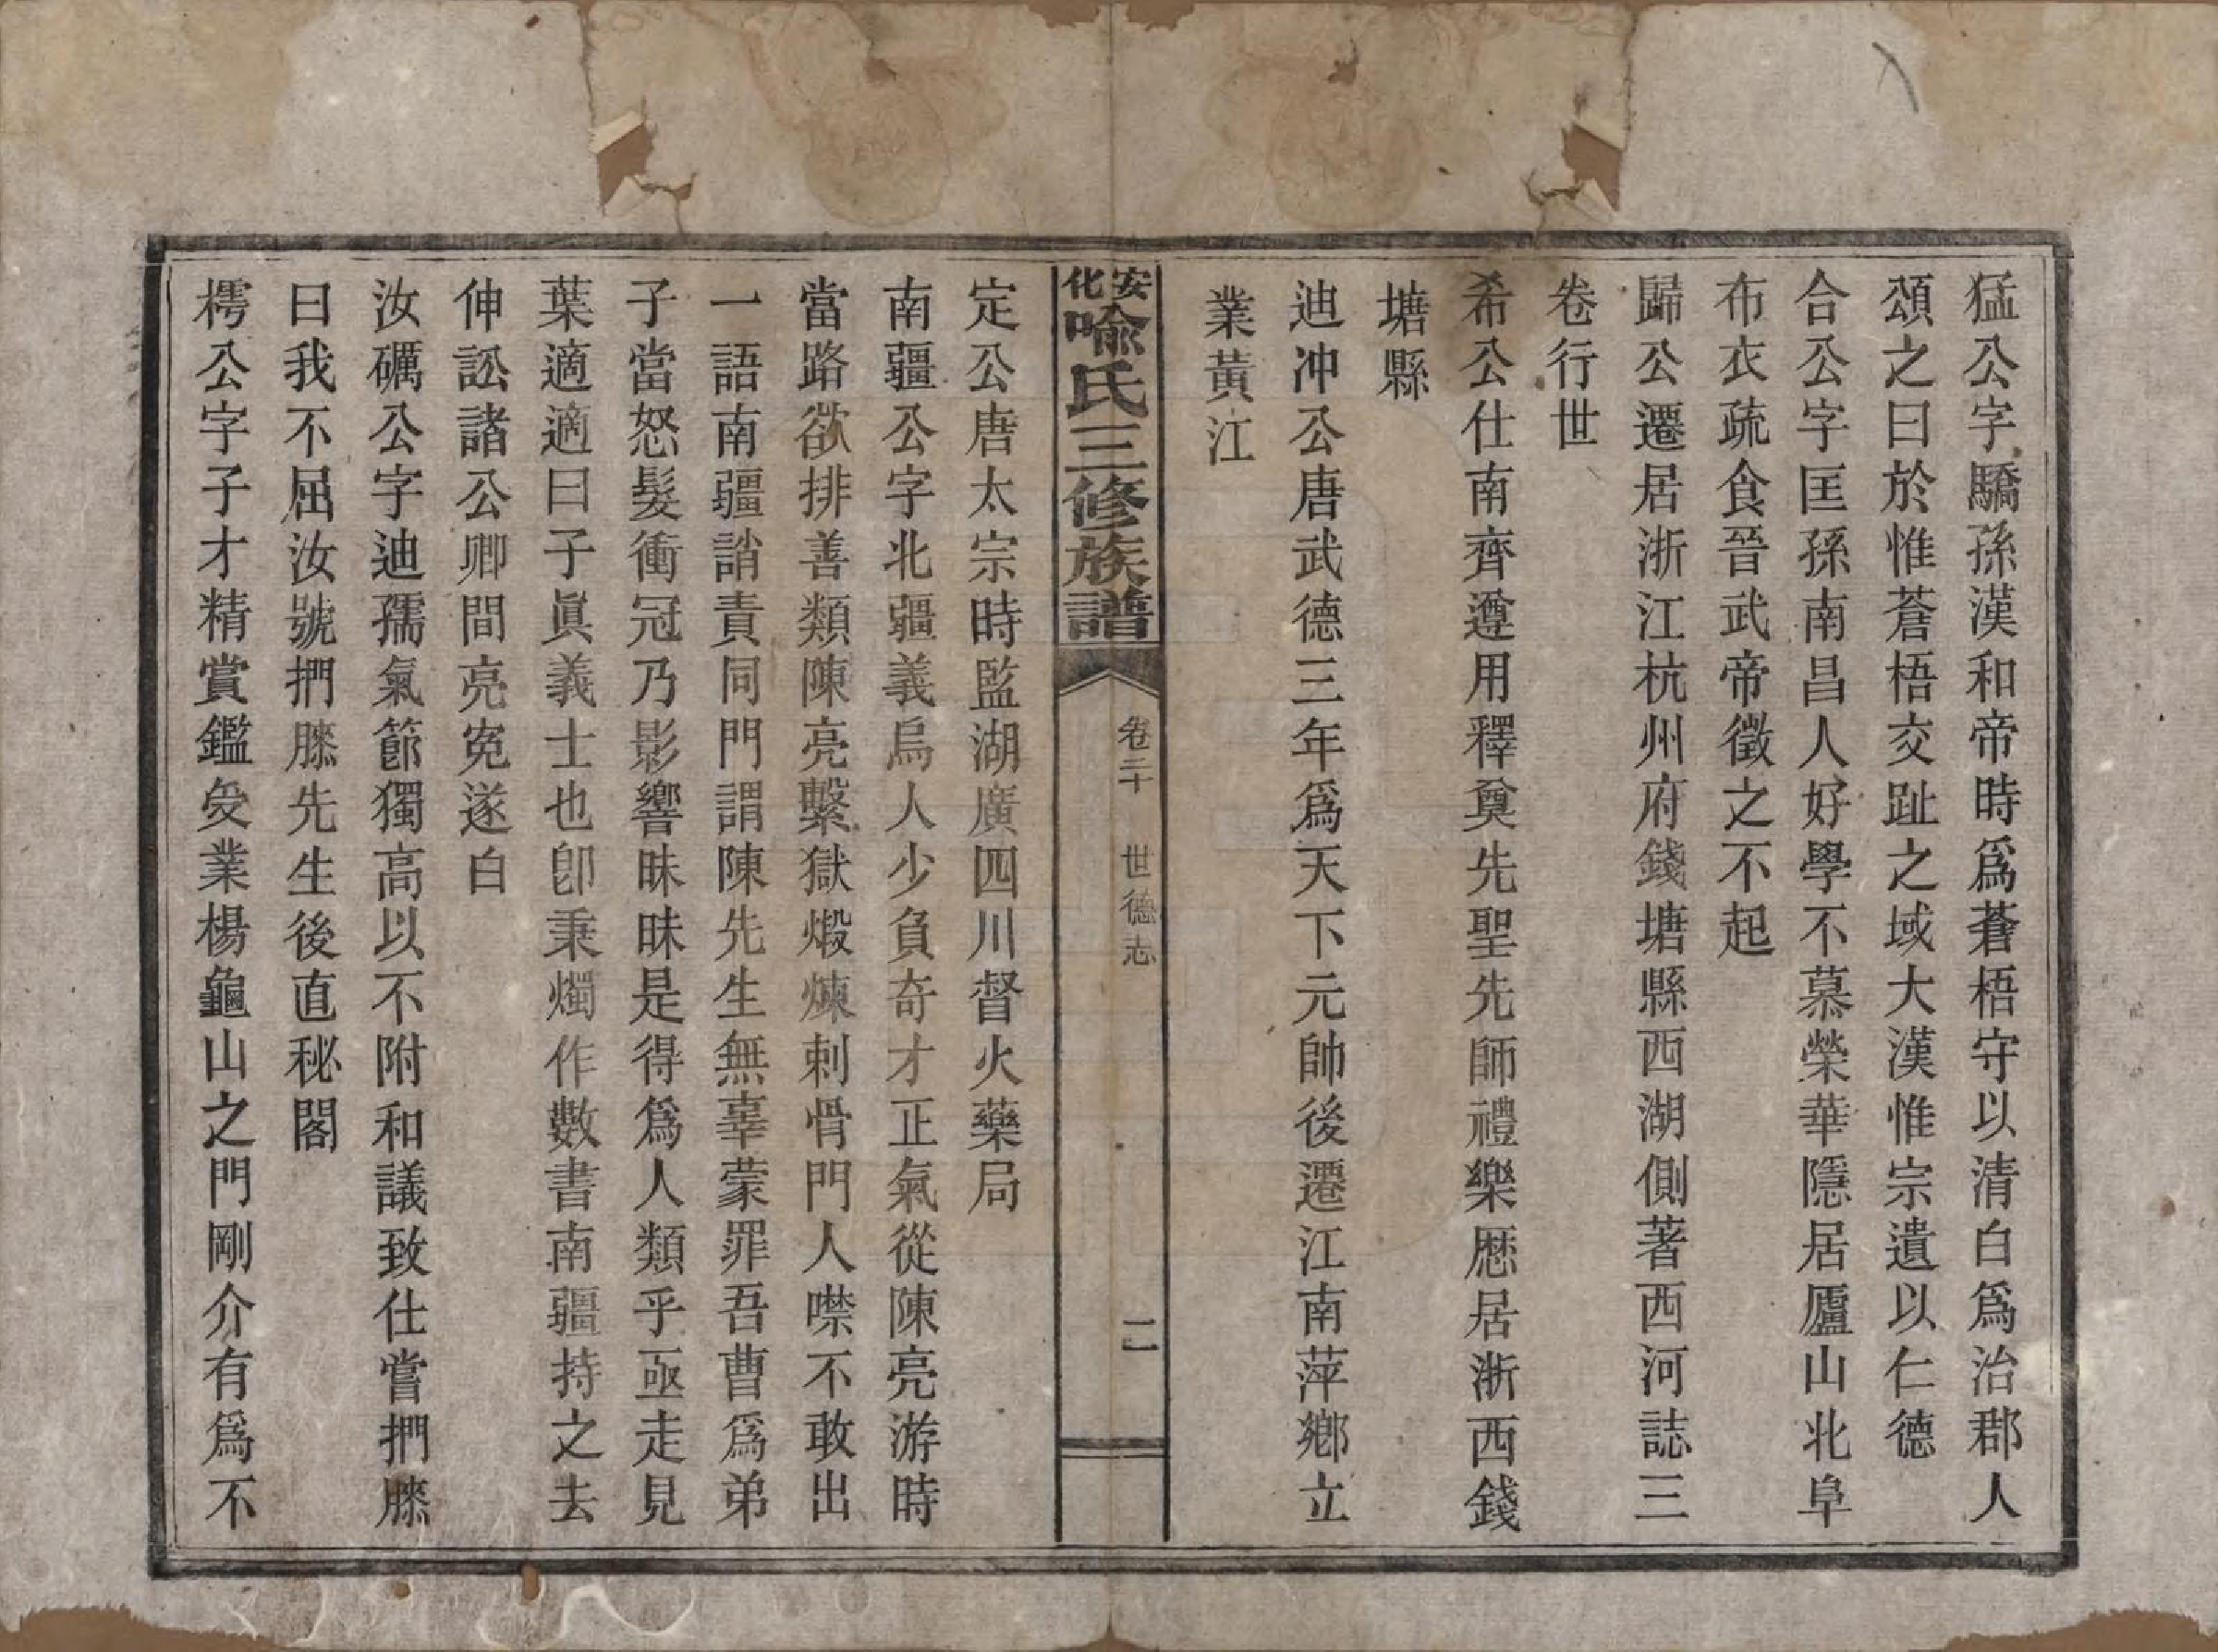 猛公字驕孫漢和帝時爲蒼梧守以清白爲治郡人
頌之曰於惟蒼梧交趾之域大漢惟宗遺以仁德
合公字匡孫南昌人好學不慕榮華隱居廬山北阜
布衣疏食晉武帝徵之不起
歸公遷居浙江杭州府錢塘縣西湖側著西河誌三
卷行世
希公仕南齊遵用釋奠先聖先師禮樂歷居浙西錢
塘縣
迪冲公唐武德三年爲天下元帥後遷江南萍鄉立
業黃江
安化喻氏三修族譜
卷二十 世德志 二
定公唐太宗時監湖廣四川督火藥局
南疆公字北疆義烏人少負奇才正氣從陳亮游時
當路欲排善類陳亮繫獄煅煉刺骨門人噤不敢出
一語南疆誚責同門謂陳先生無辜蒙罪吾曹爲弟
子當怒髮衝冠乃影響昧昧是得爲人類乎亟走見
葉適適曰子眞義士也卽秉燭作數書南疆持之去
伸訟諸公卿間亮寃遂白
汝礪公字迪孺氣節獨高以不附和議致仕嘗捫膝
曰我不屈汝號捫膝先生後直秘閣
樗公字子才精賞鑑受業楊龜山之門剛介有爲不